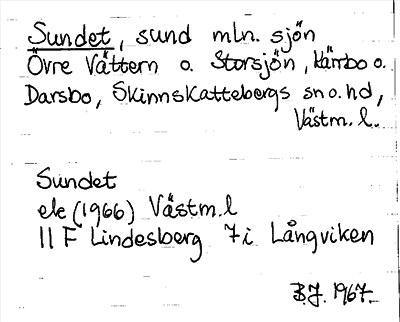 Sundet, sund mln. sjön
Övre Vättern o. Storsjön, Kärrbo o.
Darsbo, Skinnskattebergs sn o. hd,
Västm. l.
Sundet
ek (1966) Västm. l
11 F Lindesberg 7i Långviken
B.J. 1967.